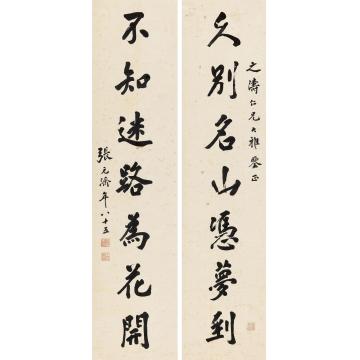 久别名山憑夢到
之濤仁兄大雅鑒正
不知迷路為花開
張元濟年八十五